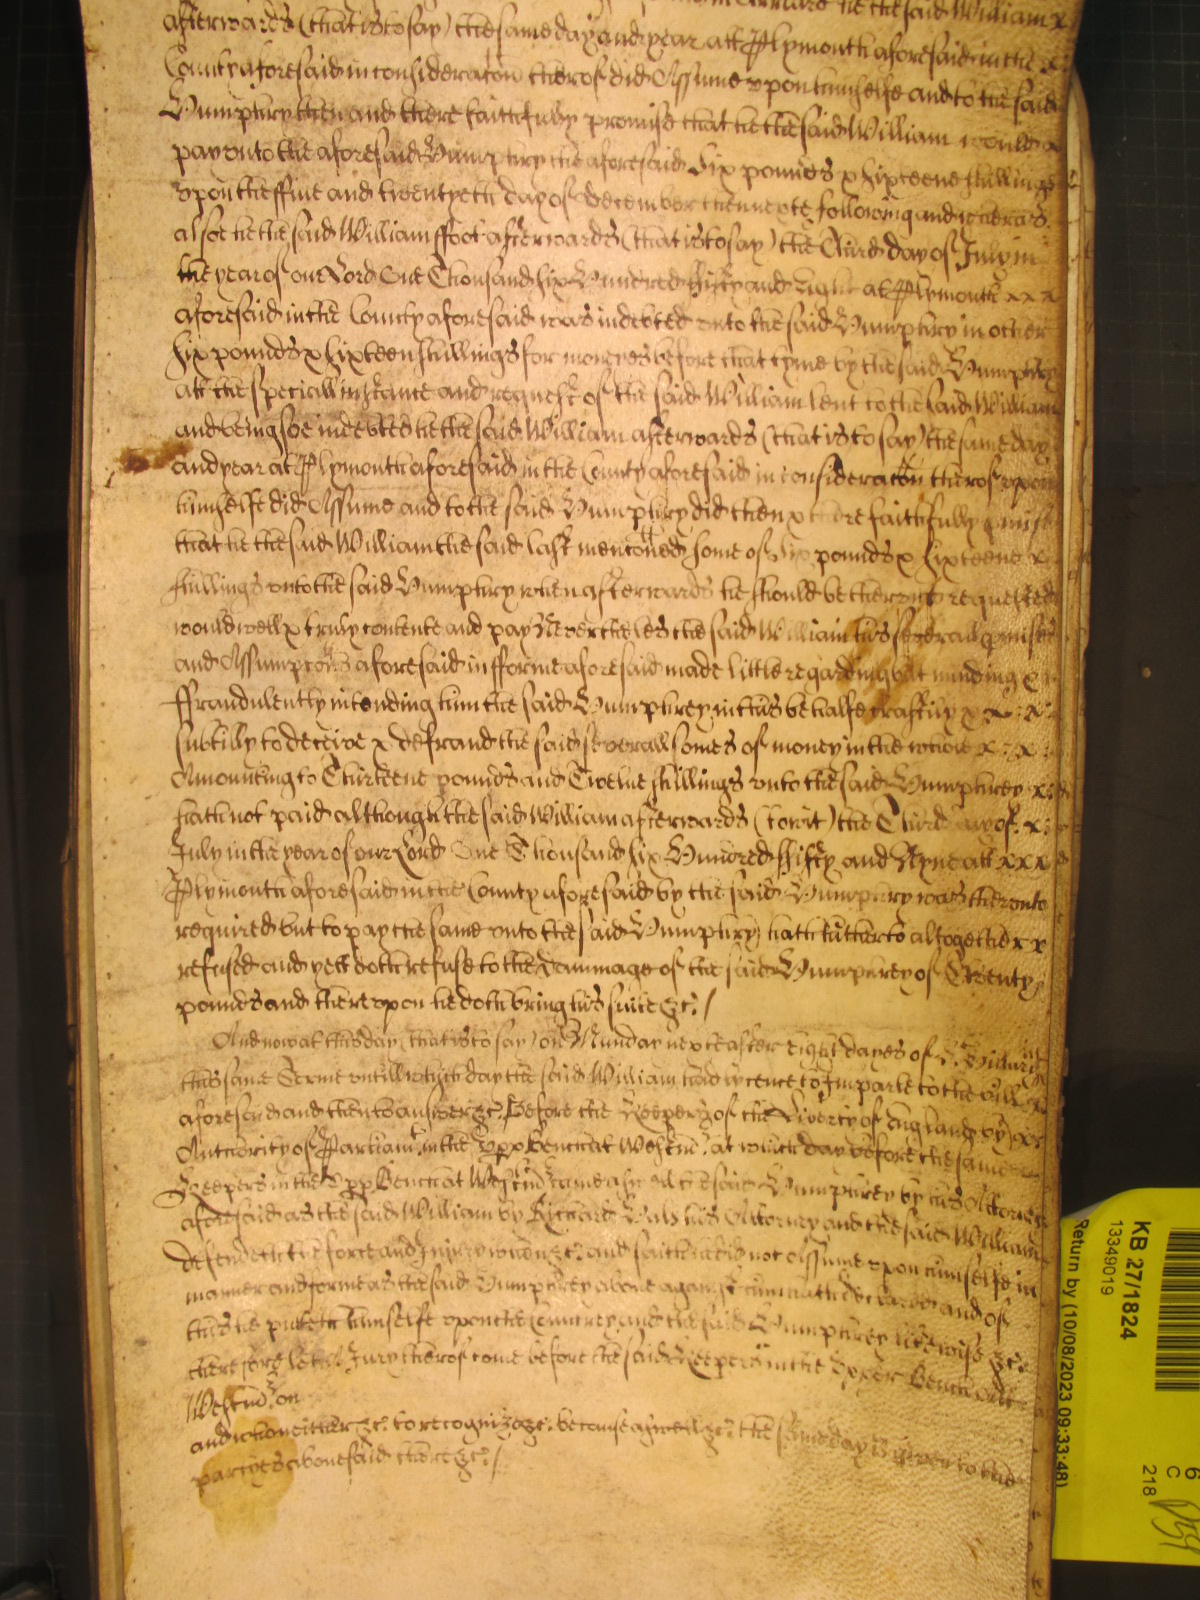 he the said William x
afterwards (that is to say) the same day and year att Plymouth aforesaid in the x
County aforesaid in consideracon therof did Assume upon himselfe and to the said
Humphry then and there faithfully promise that he the said William would x
pay unto the aforesaid Humphry the aforesaid Six pounds x sixteene shillings
upon the ffive and twentyeth day of December then next following and wheras
alsoe he the said William ffoot afterwards (that is to say) the Third day of July in
the yeare of our Lord One Thousand six Hundred ffifty and Eight at Plymouth x x x
aforesaid in the County aforesaid was indebted unto the said Humphry in other
six pounds x sixteen shillings for moneyes before that tyme by the said Humphry
att the speciall instance and request of the said William lent to the said William
and being soe indebted he the said William afterwards (that is to say) the same day
and year at Plymouth aforesaid in the County aforesaid in consideracon therof upon
himselfe did Assume and to the said Humphry did then x there faithfully pmise
that he the said William the said last menconed some of Six pounds x sixteene x
shillings unto the said Humphry when afterwards he should be therunto requested
would well x truly contente and pay Neverthelesse the said William his severall pmises
and Assumpcons aforesaid in fforme aforesaid made little regarding but minding x
ffraudulently intending him the said Humphrey in this behalfe craftily x x x
subtilly to deceive x defraud the said severall somes of money in the whole x x
Amounting to Thirteene pounds and Twelve shillings unto the said Humphrey x
hath not paid although the said William afterwards (to wit) the Third day of x
July in the year of our Lord One Thousand six Hundred ffifty and Nyne att x x x
Plymouth aforesaid in the County aforesaid by the said Humphry was therunto
required but to pay the same unto the said Humphry hath hitherto altogether x x
refused and yett doth refuse to the Dammage of the said Humphrey of Twenty
pounds and thereupon he doth bring his suite &c. /
And now at this day (that is to say) on Munday next after eight dayes of St Hillary
this same Terme untill which day the said William had lycence to Imparle to the bill
aforesaid and then to answer &c. Before the Keepers of the Liberty of England by x x
Authority of Parliamt in the Upp Bench at Westmr at which day before the same
Keepers in the Upp Bench at Westmr came aswell the said Humphrey by his Attorney
aforesaid as the said William by Richard his Attorney and the said William
defendeth the force and Injury when &c. and saith he did not Assume upon himselfe in
manner and forme as the said Humphrey above against him hath declared and of
this he putteth himselfe upon the Countrey and the said Humphrey likewise &c.
therefore let a Jury therof come before the said Keepers in the Upper Bench att
Westmr on
and who neither &c. to recognize &c. because aswell &c. the same day is given to the
partyes abovesaid there &c. /
KB 27/1824
13349019
Return by (10/08/2023 09:33:48)
6
C
218